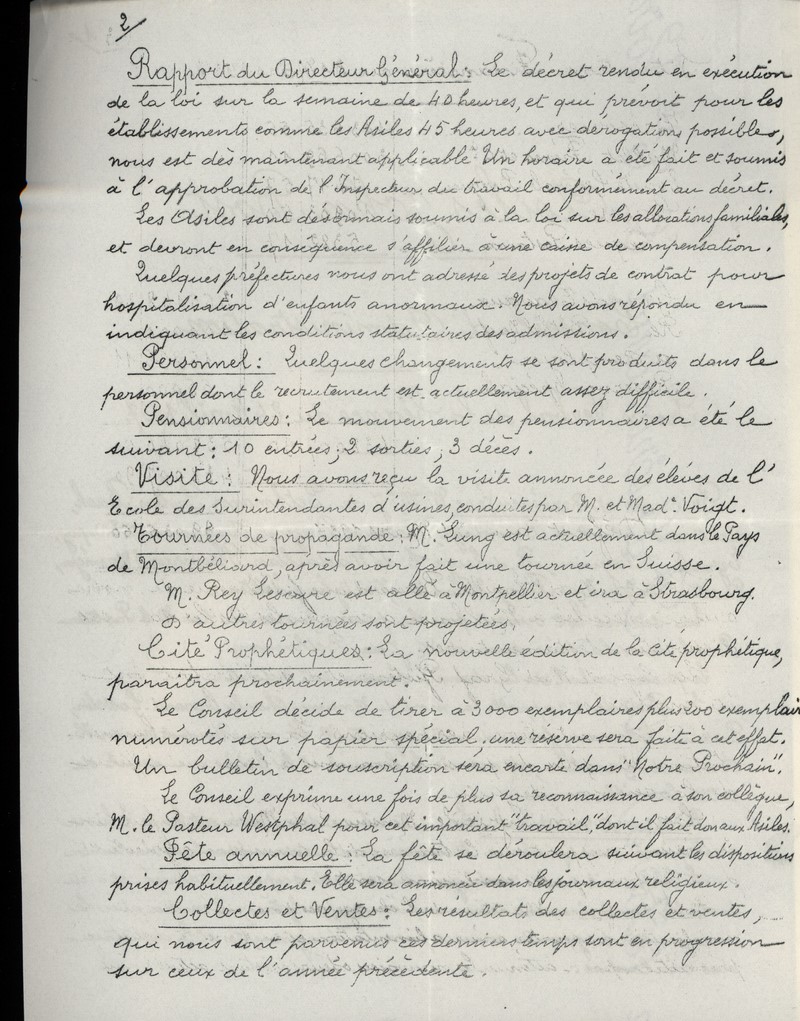 2
Rapport du Directeur Général : Le décret rendu en exécution
de la loi sur la semaine de 40 heures, et qui prévoit pour les
établissements comme les Asiles 45 heures avec dérogations possibles,
nous est dès maintenant applicable. Un horaire a été fait et soumis
à l'approbation de l'Inspecteur du travail conformément au décret.
Les Asiles sont désormais soumis à la loi sur les allocations familiales,
et devront en conséquence s'affilier à une caisse de compensation.
Quelques préfectures nous ont adressé des projets de contrat pour
hospitalisation d'enfants anormaux. Nous avons répondu en
indiquant les conditions statutaires des admissions.
Personnel : Quelques changements se sont produits dans le
personnel dont le recrutement est actuellement assez difficile.
Pensionnaires : Le mouvement des pensionnaires a été le
suivant : 10 entrées ; 2 sorties ; 3 décès.
Visite : Nous avons reçu la visite annoncée des élèves de l'
Ecole des Surintendantes d'usines, conduites par M. et Made. Voigt.
Tournées de propagande : M. Lung est actuellement dans le Pays
de Montbéliard, après avoir fait une tournée en Suisse.
M. Rey Lescure est allé à Montpellier et ira à Strasbourg.
D'autres tournées sont projetées.
Cité Prophétiques : La nouvelle édition de la Cité prophétique,
paraitra prochainement.
Le Conseil décide de tirer à 3000 exemplaires plus 200 exemplair
numérotés sur papier spécial, une réserve sera faite à cet effet.
Un bulletin de souscription sera encarté dans "Notre Prochain".
Le Conseil exprime une fois de plus sa reconnaissance à son collègue,
M. le Pasteur Westphal pour cet important "travail", dont il fait don aux Asiles.
Fête annuelle : La fête se déroulera suivant les dispositions
prises habituellement. Elle sera annoncée dans les journaux religieux.
Collectes et Ventes : Les résultats des collectes et ventes,
qui nous sont parvenus ces derniers temps sont en progression
sur ceux de l'année précédente.